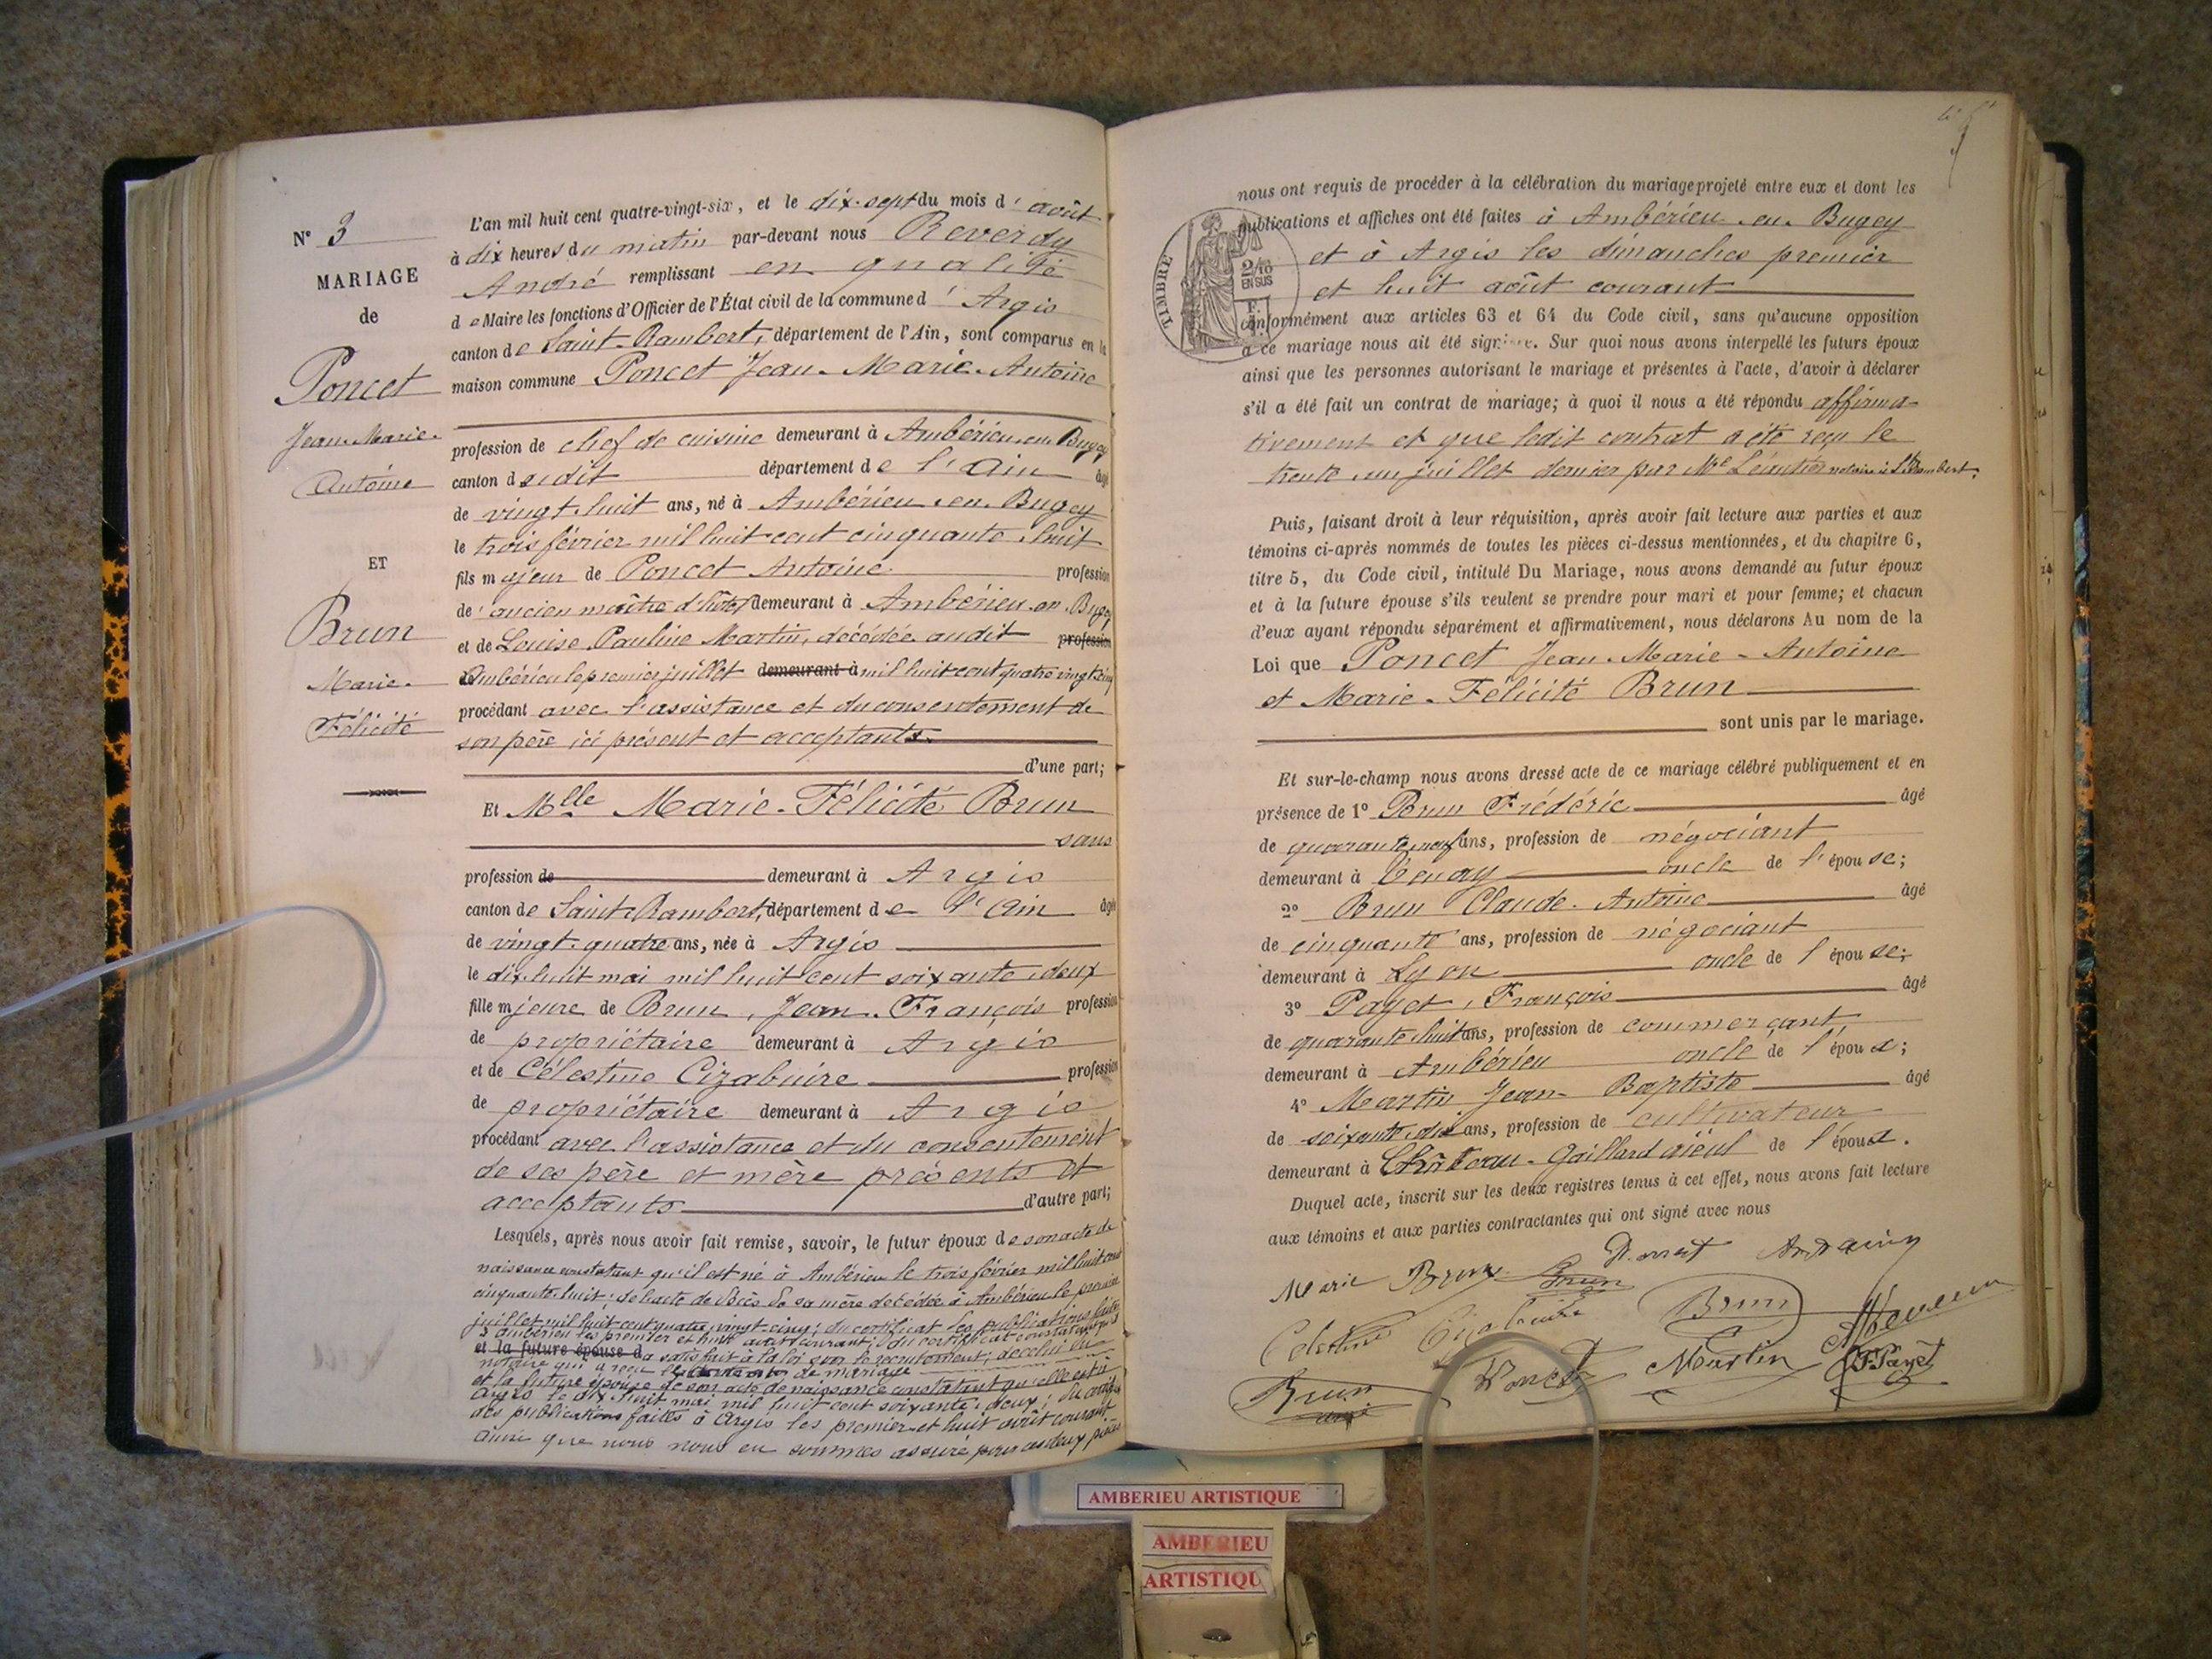 N° 3
MARIAGE
de
Poncet
Jean-Marie-
Antoine
ET
Brun
Marie-
Félicité
L'an mil huit cent quatre-vingt-six, et le dix-sept du mois d'août
à dix heures du matin par-devant nous Reverdy
André remplissant en qualité
de Maire les fonctions d'Officier de l'État civil de la commune d'Argis
canton de Saint-Rambert, département de l'Ain, sont comparus en la
maison commune Poncet Jean-Marie-Antoine
profession de chef de cuisine demeurant à Ambérieu-en-Bugey
canton dudit département de l'Ain âgé
de vingt-huit ans, né à Ambérieu-en-Bugey
le trois février mil huit cent cinquante-huit
fils majeur de Poncet Antoine profession
de ancien maître d'hôtel demeurant à Ambérieu-en-Bugey
et de Louise-Pauline Martin, décédée audit profession
Ambérieu le premier juillet demeurant à mil huit cent quatre vingt cinq
procédant avec l'assistance et du consentement de
son père ici présent et acceptants.
d'une part;
Et Mlle Marie-Félicité Brun
sans
profession de demeurant à Argis
canton de Saint-Rambert, département de l'Ain âgée
de vingt-quatre ans, née à Argis
le dix-huit mai mil huit cent soixante-deux
fille mjeure de Brun, Jean-François profession
de propriétaire demeurant à Argis
et de Célestine Cizabuire profession
de propriétaire demeurant à Argis
procédant avec l'assistance et du consentement
de ses père et mère présents et
acceptants d'autre part;
Lesquels, après nous avoir fait remise, savoir, le futur époux de son acte de
naissance constatant qu'il est né à Ambérieu le trois février mil huit cent
cinquante-huit; de l'acte de décès de sa mère décédée à Ambérieu le premier
juillet mil huit cent quatre-vingt-cinq; du certificat des publications faites
à Ambérieu les premier et huit août courant; du certificat constatant qu'il
et la future épouse d a satisfait à la loi sur le recrutement;
notaire qui a reçu le contrat de mariage
et la future épouse de son acte de naissance constatant qu'elle est née
Argis le dix-huit mai mil huit cent soixante-deux; du certificat
des publications faites à Argis les premier et huit août courant.
Ainsi que nous nous en sommes assuré par ces deux pièces
nous ont requis de procéder à la célébration du mariage projeté entre eux et dont les
publications et affiches ont été faites à Ambérieu-en-Bugey
et à Argis les dimanches premier
et huit août courant
conformément aux articles 63 et 64 du Code civil, sans qu'aucune opposition
à ce mariage nous ait été signifiée. Sur quoi nous avons interpellé les futurs époux
ainsi que les personnes autorisant le mariage et présentes à l'acte, d'avoir à déclarer
s'il a été fait un contrat de mariage; à quoi il nous a été répondu affirma-
tivement et que ledit contrat a été reçu le
trente-un juillet dernier par Me Léautier notaire à St Rambert.
Puis, faisant droit à leur réquisition, après avoir fait lecture aux parties et aux
témoins ci-après nommés de toutes les pièces ci-dessus mentionnées, et du chapitre 6,
titre 5, du Code civil, intitulé Du Mariage, nous avons demandé au futur époux
et à la future épouse s'ils veulent se prendre pour mari et pour femme; et chacun
d'eux ayant répondu séparément et affirmativement, nous déclarons Au nom de la
Loi que Poncet Jean-Marie-Antoine
et Marie-Félicité Brun
sont unis par le mariage.
Et sur-le-champ nous avons dressé acte de ce mariage célébré publiquement et en
présence de 1° Brun Frédéric âgé
de quarante-neuf ans, profession de négociant
demeurant à Tenay oncle de l'épouse;
2° Brun Claude-Antoine âgé
de cinquante ans, profession de négociant
demeurant à Lyon oncle de l'épouse;
3° Payet, François âgé
de quarante-huit ans, profession de commerçant
demeurant à Ambérieu oncle de l'époux;
4° Martin Jean-Baptiste âgé
de soixante-dix ans, profession de cultivateur
demeurant à Château-Gaillard aïeul de l'époux.
Duquel acte, inscrit sur les deux registres tenus à cet effet, nous avons fait lecture
aux témoins et aux parties contractantes qui ont signé avec nous
Marie Brun Brun Poncet
Celestine Cizabuire Brun
Brun Poncet Martin F. Payet
TIMBRE
2/10
EN SUS
AMBERIEU ARTISTIQUE
AMBERIEU
ARTISTIQU